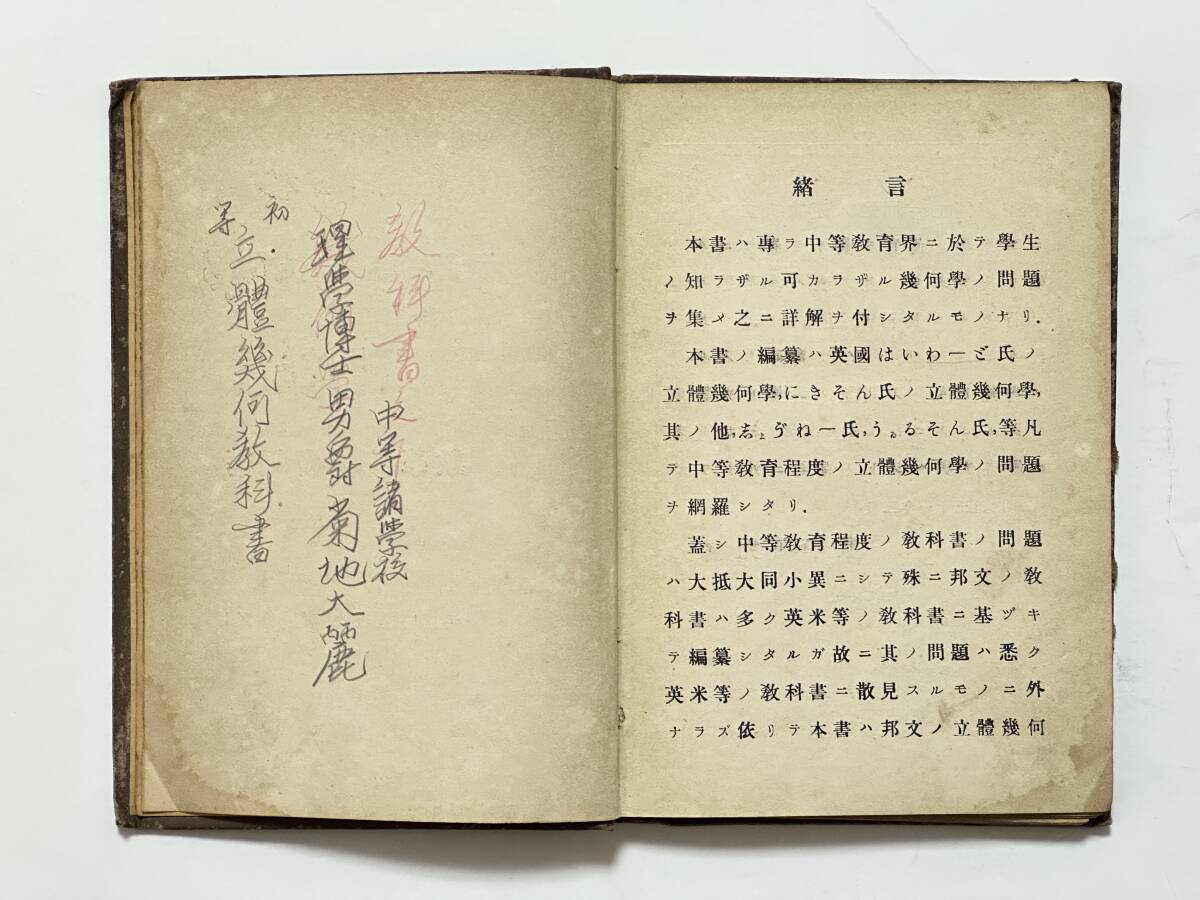 教科書
中等諸学校
理学博士男爵菊地大麗
初等
立體幾何教科書
緒言
本書ハ專ラ中等敎育界ニ於テ學生
ノ知ラザル可カラザル幾何學ノ問題
ヲ集メ之ニ詳解ヲ付シタルモノナリ.
本書ノ編纂ハ英國はいわーど氏ノ
立體幾何學,にきそん氏ノ立體幾何學,
其ノ他,志ょゔねー氏,うゐるそん氏,等凡
テ中等敎育程度ノ立體幾何學ノ問題
ヲ網羅シタリ.
蓋シ中等敎育程度ノ敎科書ノ問題
ハ大抵大同小異ニシテ殊ニ邦文ノ敎
科書ハ多ク英米等ノ敎科書ニ基ヅキ
テ編纂シタルガ故ニ其ノ問題ハ悉ク
英米等ノ敎科書ニ散見スルモノニ外
ナラズ依リテ本書ハ邦文ノ立體幾何